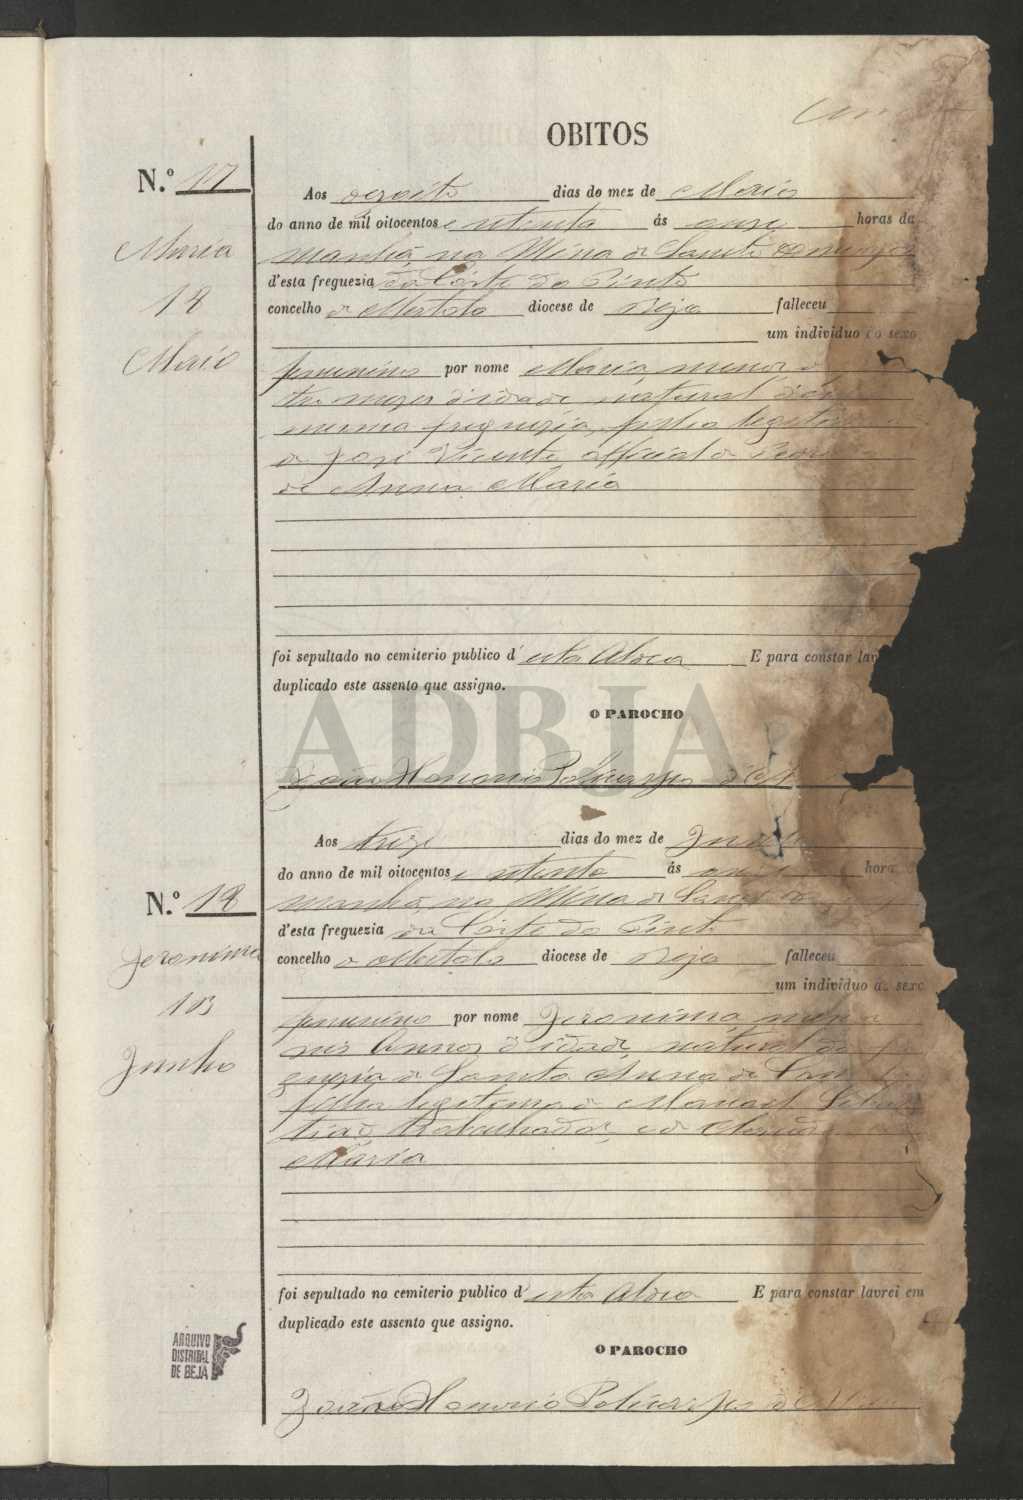 OBITOS
N.º 17
Maria
18
Maio
Aos dezoito dias do mez de Maio
do anno de mil oitocentos e oitenta ás onze horas da
manhã, na Mina de Sancto Domingos
d'esta freguezia da Côrte do Pinto
concelho de Mertola diocese de Beja falleceu
um individuo do sexo
feminino por nome Maria, menor de
tres mezes d'idade, natural d'esta
mesma freguezia, filha legitima
de José Vicente, official de
de Anna Maria
foi sepultado no cemiterio publico d'esta Aldea E para constar lav
duplicado este assento que assigno.
O PAROCHO
João Honorio Policarpo d'
ADBJA
N.º 18
Jeronima
13
Junho
Aos treze dias do mez de Junho
do anno de mil oitocentos e oitenta ás onze hora
manhã, na Mina de Sancto Do
d'esta freguezia da Côrte do Pinto
concelho de Mertola diocese de Beja falleceu
um individuo do sexo
feminino por nome Jeronima, menor
Annos d'idade, natural da
guezia de Sancta Anna de
filha legitima de Manoel Sebas
tião, trabalhador, e de
Maria
foi sepultado no cemiterio publico d'esta Aldea E para constar lavrei em
duplicado este assento que assigno.
O PAROCHO
João Honorio Policarpo d'
ARQUIVO
DISTRITAL
DE BEJA